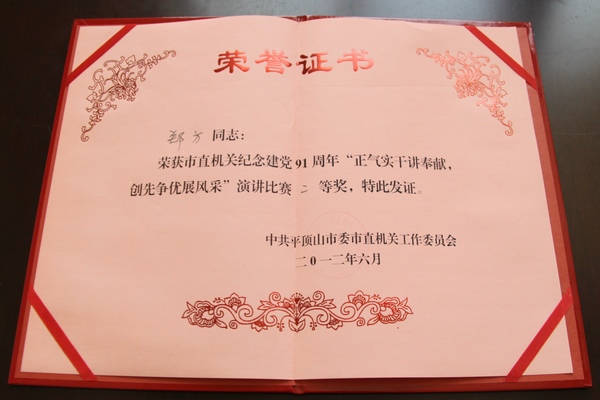 荣誉证书
郑方 同志：
荣获市直机关纪念建党91周年“正气实干讲奉献，
创先争优展风采”演讲比赛 二 等奖，特此发证。
中共平顶山市委市直机关工作委员会
二0一二年六月